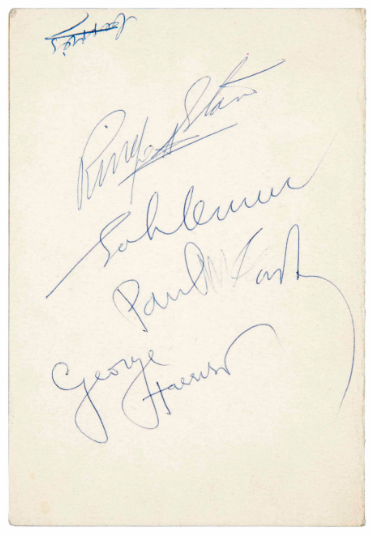 Ringo Starr
John Lennon
Paul McCartney
George Harrison